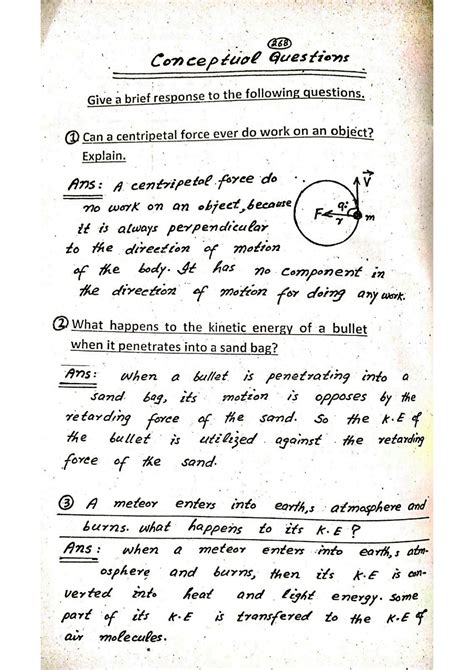 268
Conceptual Questions
Give a brief response to the following questions.
① Can a centripetal force ever do work on an object?
Explain.
Ans: A centripetal force do
no work on an object, because
it is always perpendicular
to the direction of motion
of the body. It has no component in
the direction of motion for doing any work.
V
F
90°
r
m
② What happens to the kinetic energy of a bullet
when it penetrates into a sand bag?
Ans: when a bullet is penetrating into a
sand bag, its motion is opposes by the
retarding force of the sand. So the K.E of
the bullet is utilized against the retarding
force of the sand.
③ A meteor enters into earth,s atmosphere and
burns. what happens to its K.E ?
Ans: when a meteor enters into earth,s atm-
osphere and burns, then its K.E is con-
verted into heat and light energy. Some
part of its K.E is transfered to the K.E of
air molecules.